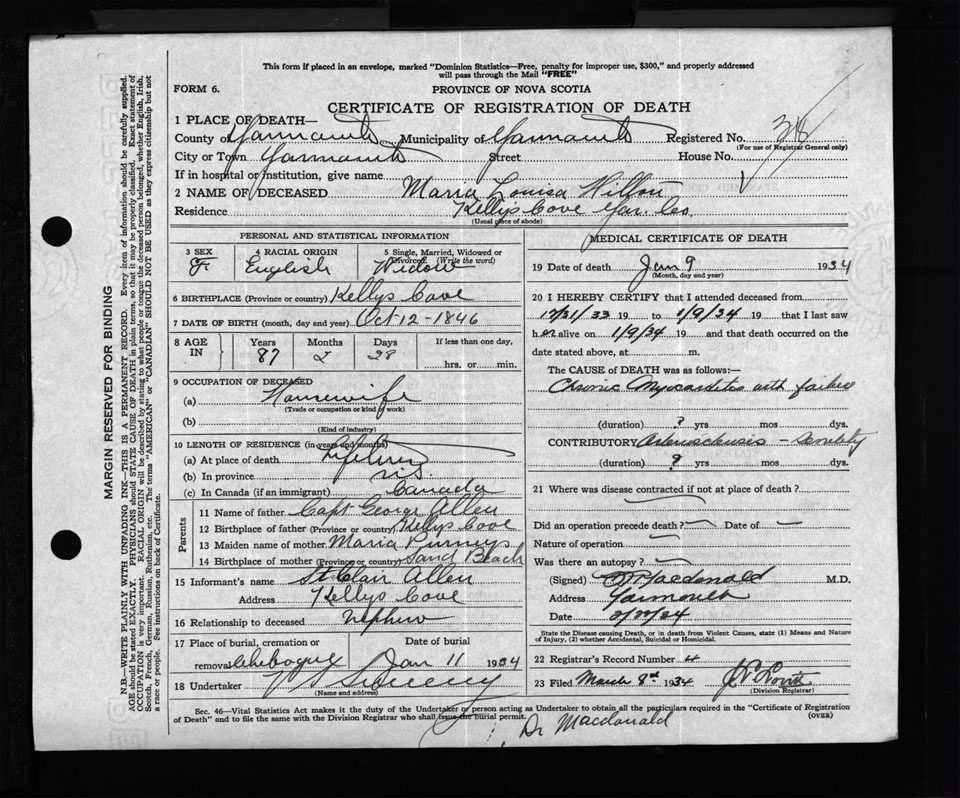 This form if placed in an envelope, marked "Dominion Statistics—Free, penalty for improper use, $300," and properly addressed
will pass through the Mail "FREE"
FORM 6.
PROVINCE OF NOVA SCOTIA
CERTIFICATE OF REGISTRATION OF DEATH
1 PLACE OF DEATH—
County of Yarmouth Municipality of Yarmouth Registered No.
(For use of Registrar General only)
City or Town Yarmouth Street House No.
If in hospital or institution, give name
2 NAME OF DECEASED Maria Louisa Hilton
Residence Kellys Cove Yar. Co.
(Usual place of abode)
PERSONAL AND STATISTICAL INFORMATION
3 SEX 4 RACIAL ORIGIN 5 Single, Married, Widowed or Divorced (Write the word)
F English Widow
6 BIRTHPLACE (Province or country) Kellys Cove
7 DATE OF BIRTH (month, day and year) Oct 12-1846
8 AGE IN Years Months Days If less than one day,
87 2 28 hrs. or min.
9 OCCUPATION OF DECEASED
(a) Housewife
(Trade or occupation or kind of work)
(b)
(Kind of industry)
10 LENGTH OF RESIDENCE (in years and months)
(a) At place of death Lifetime
(b) In province N.S.
(c) In Canada (if an immigrant) Canada
Parents
11 Name of father Capt George Allen
12 Birthplace of father (Province or country) Kellys Cove
13 Maiden name of mother Maria
14 Birthplace of mother (Province or country) Sand Beach
15 Informant's name St Clair Allen
Address Kellys Cove
16 Relationship to deceased Nephew
17 Place of burial, cremation or Date of burial
removal Chebogue Jan 11 1934
18 Undertaker V S Sweeny
(Name and address)
MEDICAL CERTIFICATE OF DEATH
19 Date of death Jan 9 1934
(Month, day and year)
20 I HEREBY CERTIFY that I attended deceased from
12/31/33 19 to 1/9/34 19 that I last saw
her alive on 1/9/34 19 and that death occurred on the
date stated above, at m.
The CAUSE of DEATH was as follows:—
Chronic Myocarditis with failure
(duration) ? yrs mos dys.
CONTRIBUTORY Arteriosclerosis — Senility
(duration) ? yrs mos dys.
21 Where was disease contracted if not at place of death?
Did an operation precede death? Date of
Nature of operation
Was there an autopsy?
(Signed) Macdonald M.D.
Address Yarmouth
Date
State the Disease causing Death, or in death from Violent Causes, state (1) Means and Nature
of Injury, (2) whether Accidental, Suicidal or Homicidal.
22 Registrar's Record Number 4
23 Filed March 8th 1934
(Division Registrar)
Sec. 46—Vital Statistics Act makes it the duty of the Undertaker or person acting as Undertaker to obtain all the particulars required in the "Certificate of Registration
of Death" and to file the same with the Division Registrar who shall issue the burial permit.
(OVER)
Dr Macdonald
MARGIN RESERVED FOR BINDING
N.B—WRITE PLAINLY WITH UNFADING INK—THIS IS A PERMANENT RECORD. Every item of information should be carefully supplied.
AGE should be stated EXACTLY. PHYSICIANS should STATE CAUSE OF DEATH in plain terms, so that it may be properly classified. Exact statement of
OCCUPATION is very important. RACIAL ORIGIN will be described by stating to what people or tongue the deceased person belonged, whether English, Irish,
Scotch, French, German, Russian, Ruthenian, etc. The terms "AMERICAN" or "CANADIAN" SHOULD NOT BE USED as they express citizenship but not
a race or people. See instructions on back of Certificate.